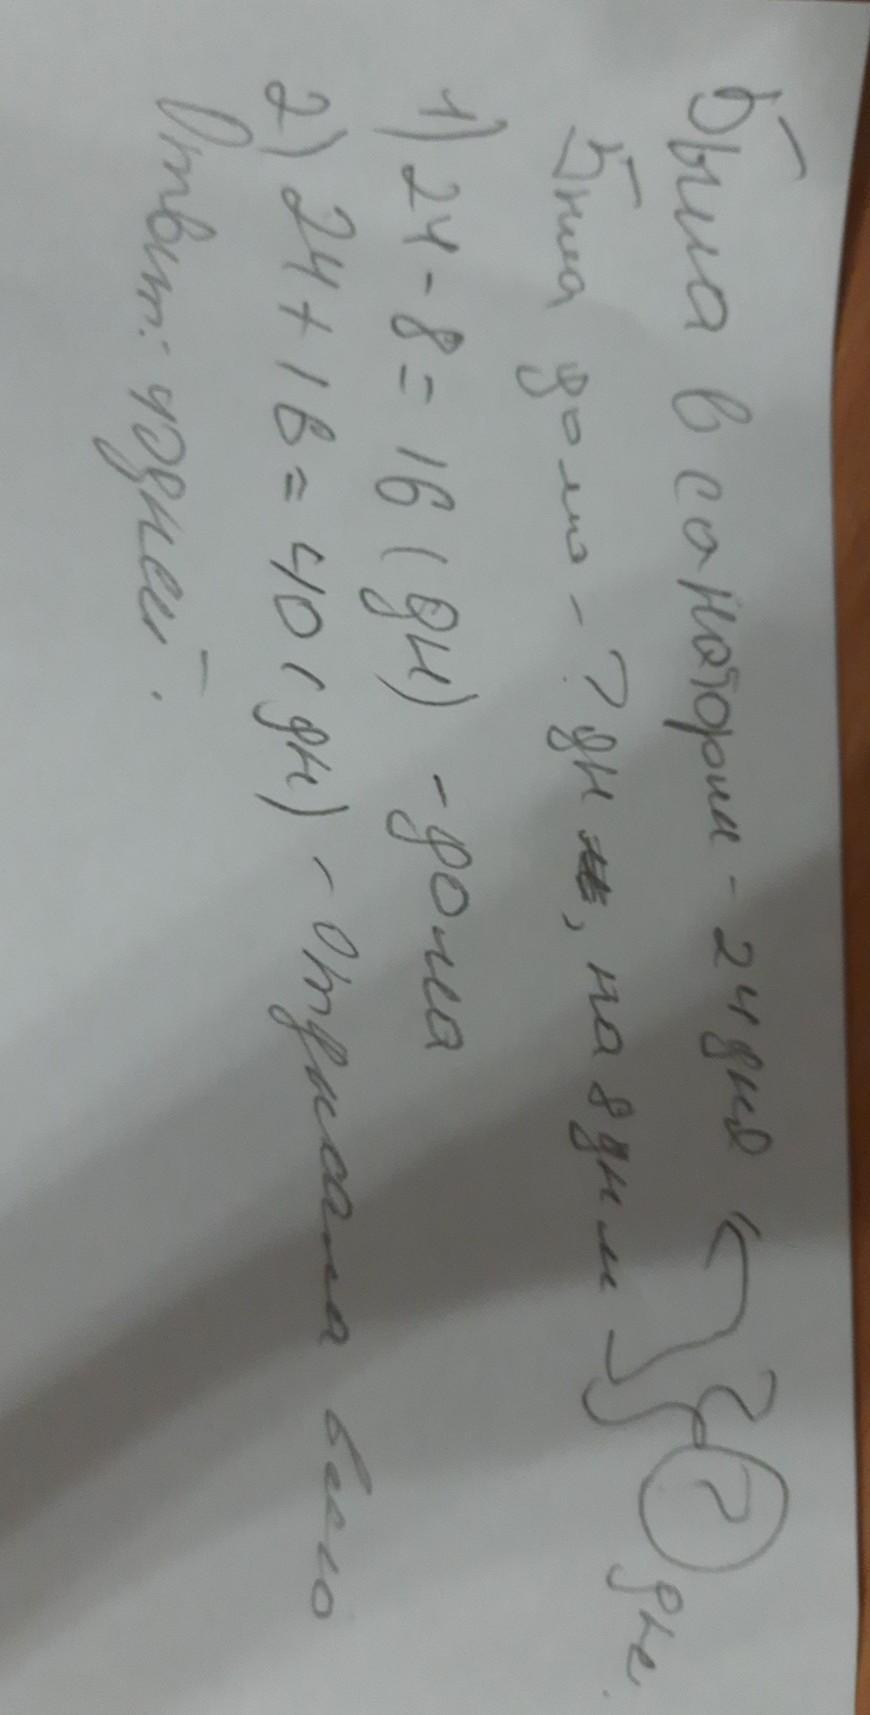 Была в санатории - 24 дня } ? дне.
Была дома - ? дн, на 8 дн м
1) 24 - 8 = 16 (дн) - дома
2) 24 + 16 = 40 (дн) - отдыхала
Ответ: 40 дней.